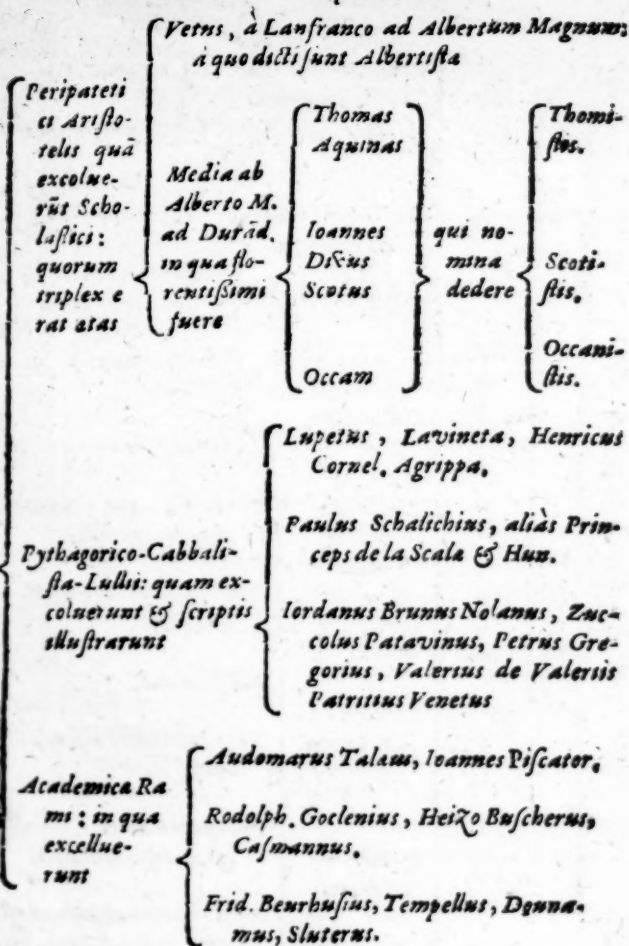 Vetus, à Lanfranco ad Albertum Magnum:
à quo dicti sunt Albertistæ
Peripateti
ci Aristo-
telis quā
excolue-
rūt Scho-
lastici:
quorum
triplex e
rat ætas
Media ab
Alberto M.
ad Durād.
in qua flo-
rentißimi
fuere
Thomas
Aquinas
Ioannes
Dūus
Scotus
Occam
qui no-
mina
dedere
Thomi-
stis.
Scoti-
stis.
Occani-
stis.
Pythagorico-Cabbali-
sta-Lullii: quam ex-
coluerunt & scriptis
illustrarunt
Lupetus, Lavineta, Henricus
Cornel. Agrippa.
Paulus Schalichius, aliàs Prin-
ceps de la Scala & Hun.
Iordanus Brunus Nolanus, Zuc-
colus Patavinus, Petrus Gre-
gorius, Valerius de Valeriis
Patritius Venetus
Academica Ra
mi: in qua
excellue-
runt
Audomarus Talæus, Ioannes Piscator.
Rodolph. Goclenius, Heizo Buscherus,
Casmannus.
Frid. Beurhusius, Tempellus, Douna-
mus, Sluterus.